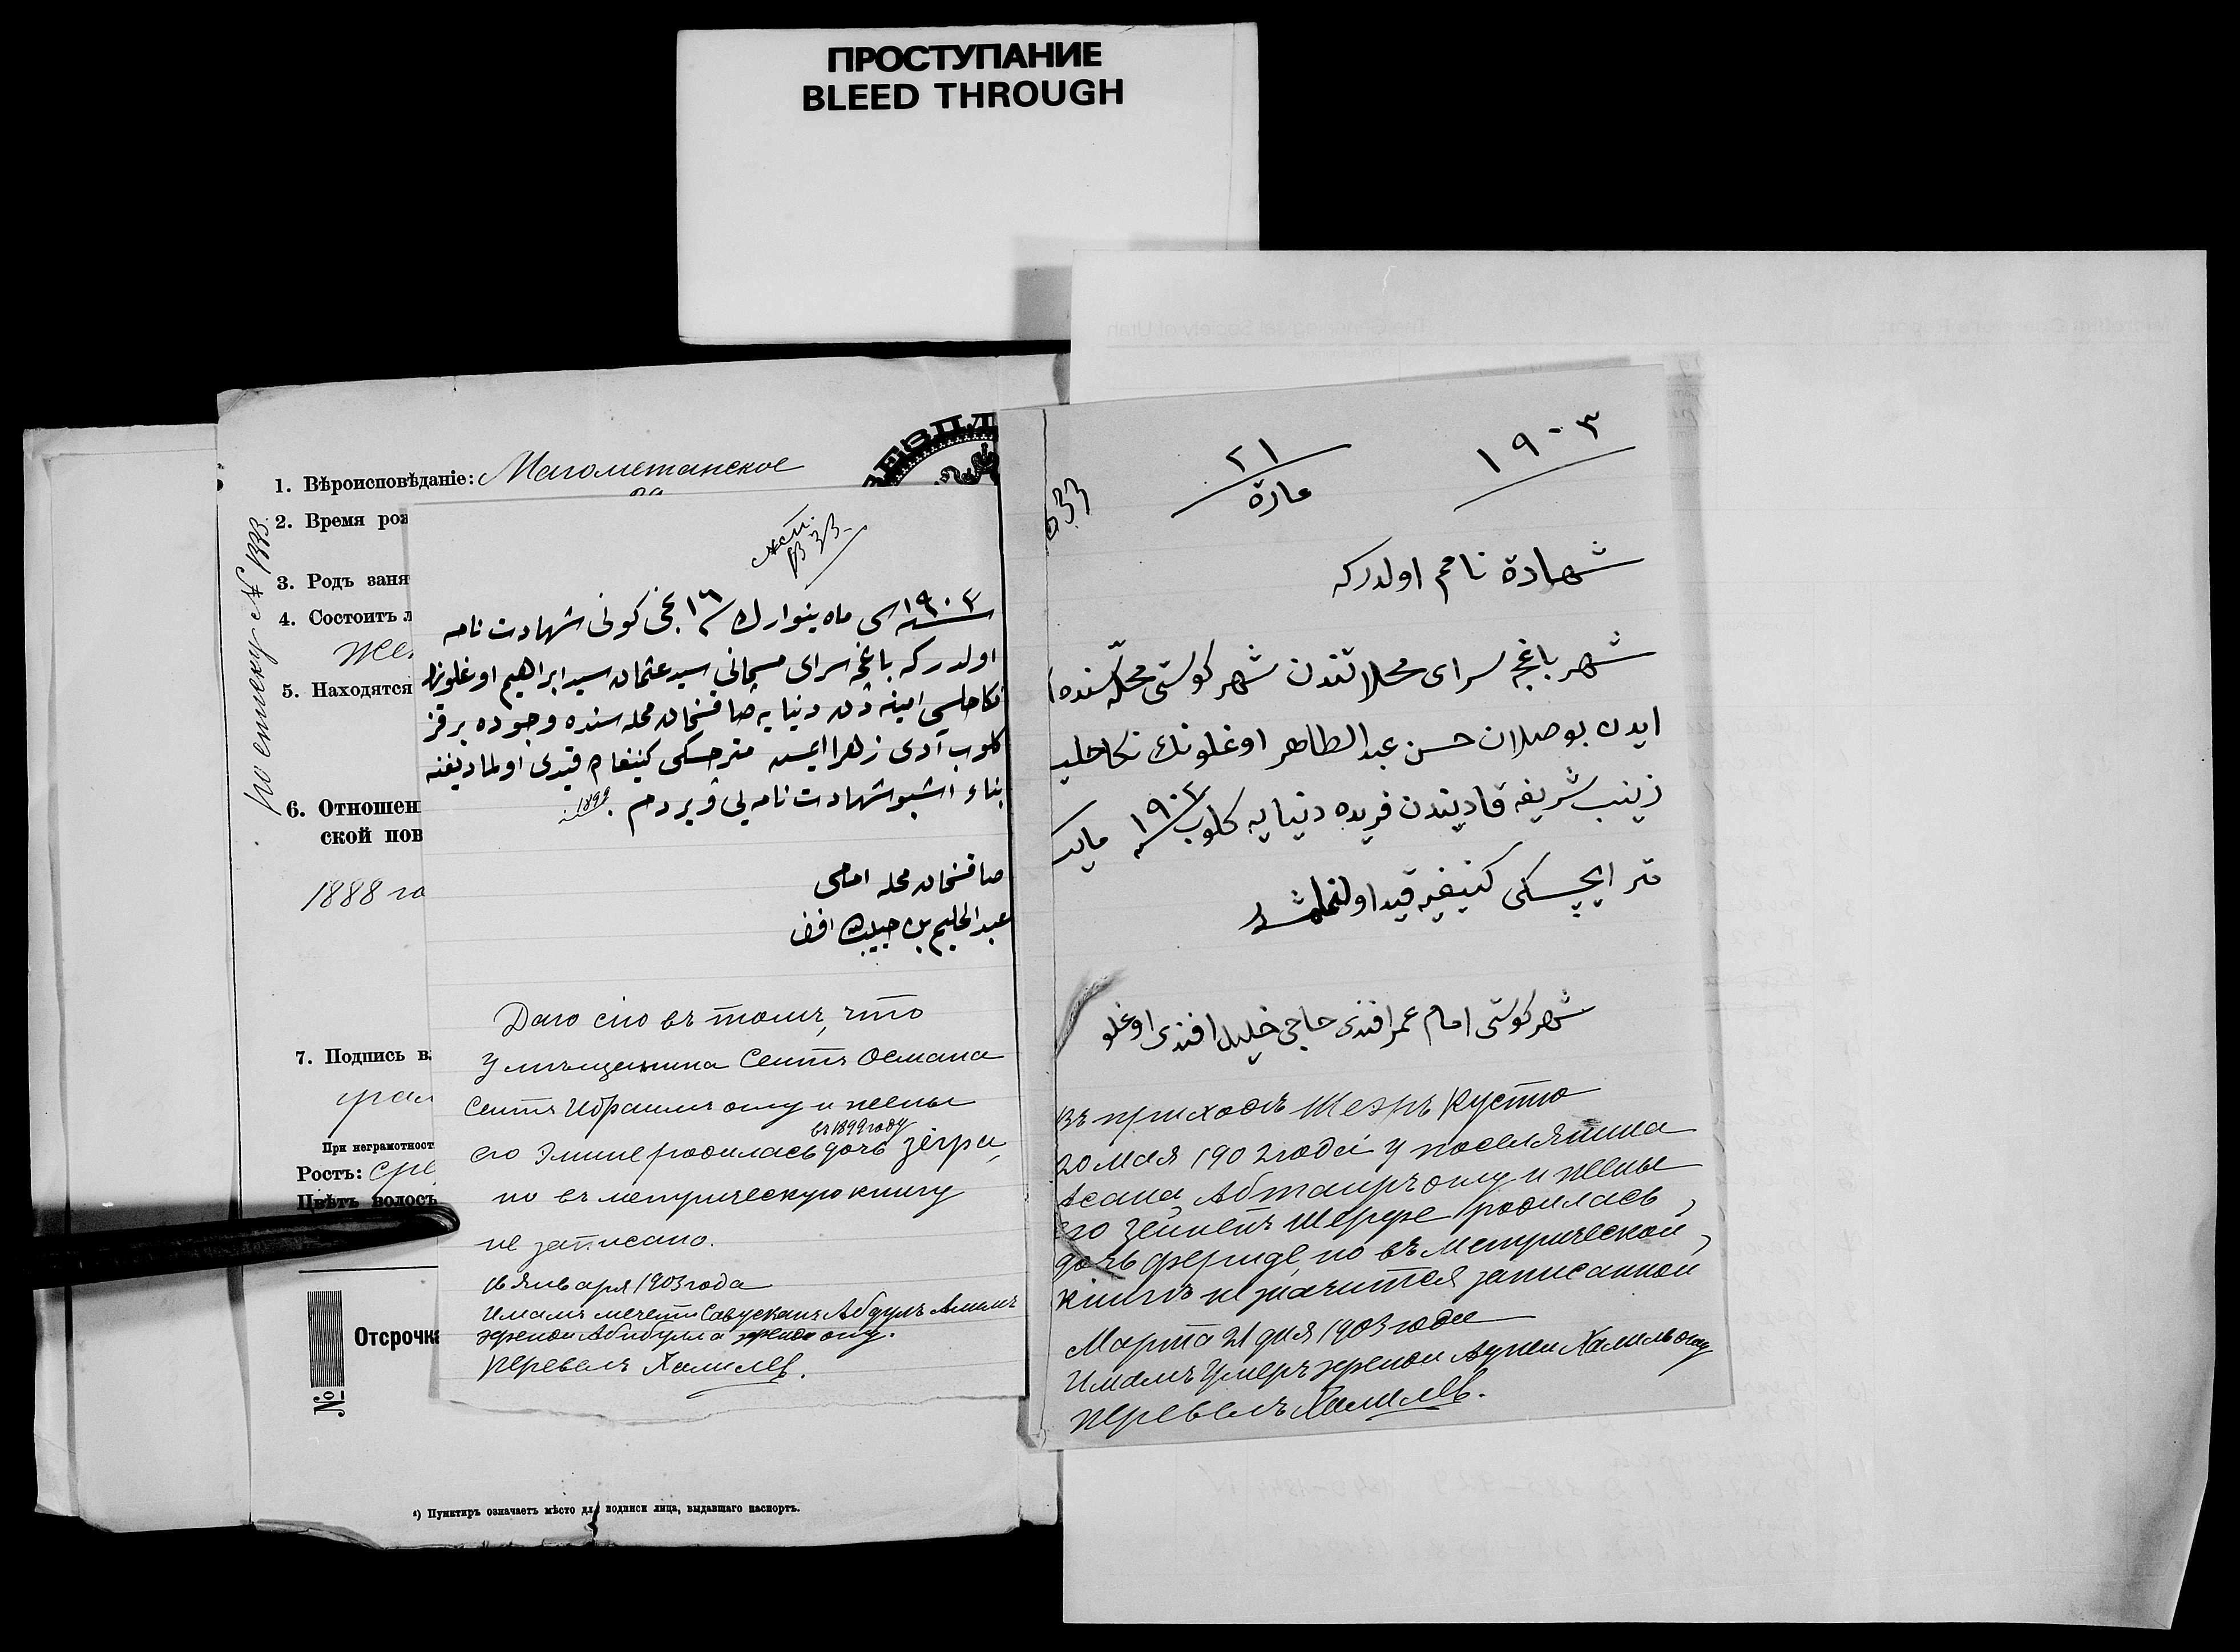 ПРОСТУПАНИЕ
BLEED THROUGH
1. Вѣроисповѣданіе: Магометанское
2. Время рож
3. Родъ заня
4. Состоитъ л
Жен
5. Находятся
6. Отношен
ской пов
1888 го
7. Подпись в
При неграмотност
Ростъ: Сре
Цвѣтъ волосъ
№
Отсрочка
¹) Пунктиръ означаетъ мѣсто для подписи лица, выдавшаго паспортъ.
١٩٠٣ سنه سى ماه ينوارك ١٦ نجى كونى شهادت نامه
اولدركه باغچه سراى مسچانى سيد عثمان سيد ابراهيم اوغلونك
نكاحليسى امينه دن دنيايه صاقسخان محله سنده وجوده بر قز
كلوب آدى زهرا ايسه متريچسكى كنيغام قيدى اولماديغنه
بناء اشبو شهادت نامه يى ويردم. 1899
صاقسخان محله امامى
عبد الحليم بن حبيب الله افندى
Даю сію въ томъ, что
у мѣщанина Сеитъ Османа
Сеитъ Ибраимъ оглу и жены
его Эмине родилась въ 1899 году дочь Зегра,
но въ метрическую книгу
не записано.
16 января 1903 года
Имамъ мечети Савусканъ Абдулъ Алимъ
эфенди Абибулла эфенди оглу.
Перевелъ Халилевъ.
١٩٠٣
٢١
مارة
شهادة نامم اولدركه
شهر باغچه سراى محلاتندن شهر كوستى محلّه سنده
ايدن بوصلان حسن عبد الطاهر اوغلونك نكاحليسى
زينب شريفه قاديندن فريده دنيايه كلوب ١٩٠٢ مايك
متريچسكى كنيغيه قيد اولنمامشدر
شهر كوستى امام عمر افندى حاجى خليل افندى اوغلو
Въ приходѣ Шегръ Кусто
20 мая 1902 года у поселянина
Асана Абтаиръ оглу и жены
его Зейнепъ Шерфе родилась
дочь Фериде, но въ метрической
книгѣ не значится записанной
Марта 21 дня 1903 года
Имамъ Умеръ эфенди Аджи Халиль оглу
Перевелъ Халилевъ.